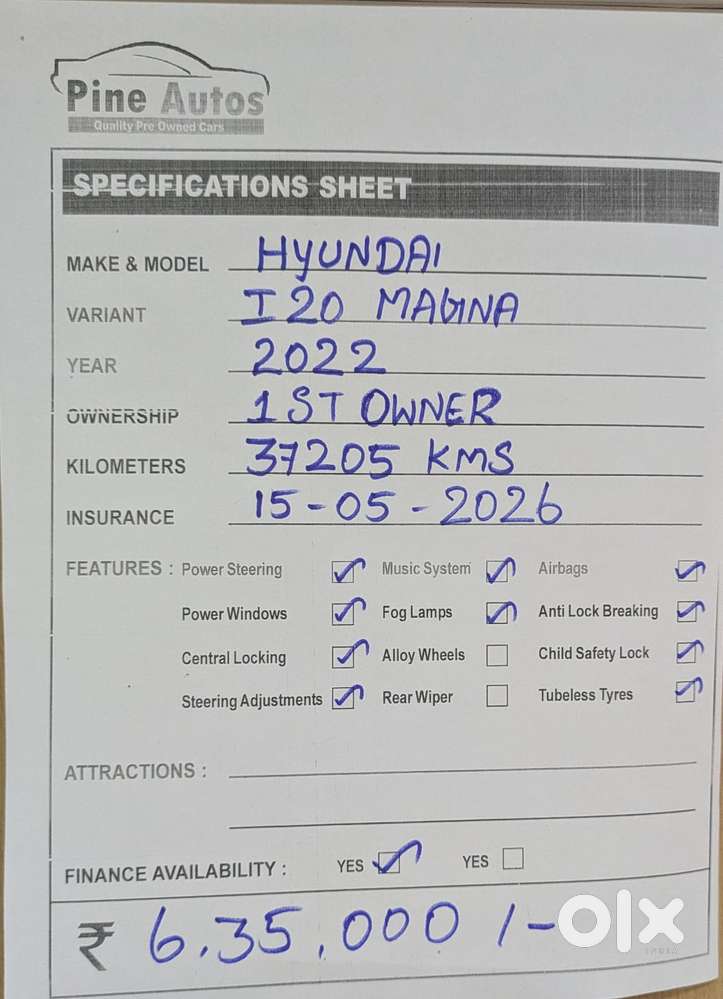 Pine Autos
Quality Pre Owned Cars
SPECIFICATIONS SHEET
MAKE & MODEL HYUNDAI
VARIANT I20 MAGNA
YEAR 2022
OWNERSHIP 1ST OWNER
KILOMETERS 37205 KMS
INSURANCE 15-05-2026
FEATURES : Power Steering Music System Airbags
Power Windows Fog Lamps Anti Lock Breaking
Central Locking Alloy Wheels Child Safety Lock
Steering Adjustments Rear Wiper Tubeless Tyres
ATTRACTIONS :
FINANCE AVAILABILITY : YES YES
₹ 6,35,000/-
olx
INDIA